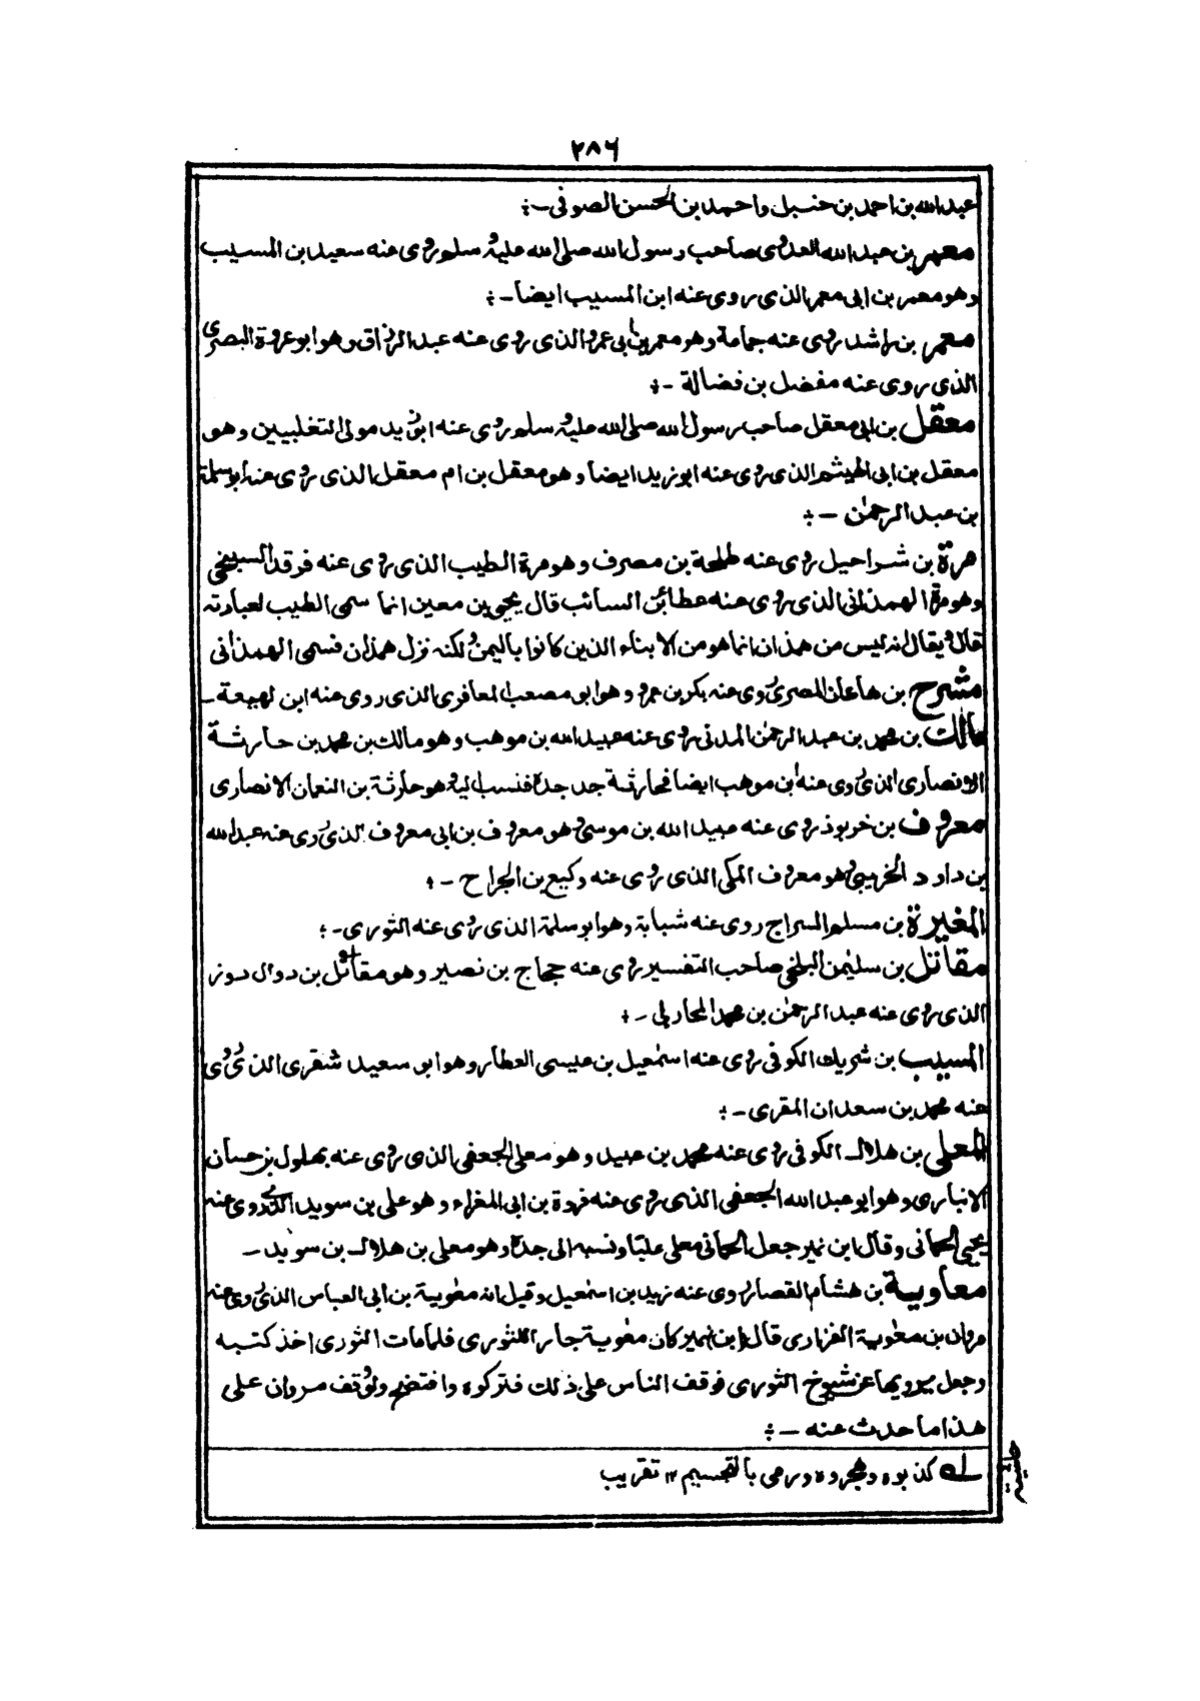 ٢٨٦
عبد الله بن احمد بن حنبل واحمد بن الحسن الصوفى -:
معمر بن عبد الله العدوى صاحب رسول الله صلى الله عليه وسلم روى عنه سعيد ابن المسيب
وهو معمر بن ابى معمر الذى روى عنه ابن المسيب ايضا -:
معمر بن راشد روى عنه جماعة وهو معمر بن ابى عمرو الذى روى عنه عبد الرزاق وهو ابو عروة البصرى
الذى روى عنه مفضل بن فضالة -:
معقل بن ابى معقل صاحب رسول الله صلى الله عليه وسلم روى عنه ابو زيد مولى التغلبيين وهو
معقل بن ابى الهيثم الذى روى عنه ابو زيد ايضا وهو معقل بن ام معقل الذى روى عنه ابو سلمة
بن عبد الرحمٰن -:
مرة بن شراحيل روى عنه طلحة بن مصرف وهو مرة الطيب الذى روى عنه فرقد السبخى
وهو مرة الهمذانى الذى روى عنه عطاء بن السائب قال يحيى بن معين انما سمى الطيب لعبادته
قال ويقال انه ليس من همذان انما هو من الابناء الذين كانوا باليمن ولكنه نزل همذان فسمى الهمذانى
مشرح بن هاعان المصرى روى عنه بكر بن عمرو وهو ابو مصعب المعافرى الذى روى عنه ابن لهيعة -
مالك بن محمد بن عبد الرحمٰن المدنى روى عنه عبيد الله بن موهب وهو مالك بن محمد بن حارثة
الانصارى الذى روى عنه ابن موهب ايضا فحارثة جد جده فنسب اليه وهو حارثة بن النعمان الانصارى
معروف بن خربوذ روى عنه عبيد الله بن موسى وهو معروف بن ابى معروف الذى روى عنه عبد الله
بن داود الخريبى وهو معروف المكى الذى روى عنه وكيع بن الجراح -:
المغيرة بن مسلم السراج روى عنه شبابة وهو ابو سلمة الذى روى عنه الثورى -:
مقاتل بن سليمٰن البلخى صاحب التفسير روى عنه حجاج بن نصير وهو مقاتل بن دوال دوز
الذى روى عنه عبد الرحمٰن بن محمد المحاربى -:
المسيب بن شريك الكوفى روى عنه اسمٰعيل بن عيسى العطار وهو ابو سعيد شقرى الذى روى
عنه محمد بن سعدان المقرى -:
المعلى بن هلال الكوفى روى عنه محمد بن عبيد وهو معلى الجعفى الذى روى عنه بهلول بن حسان
الانبارى وهو ابو عبد الله الجعفى الذى روى عنه فروة بن ابى المغراء وهو على بن سويد الذى روى عنه
يحيى الحمانى وقال ابن نمير جعل الحمانى معلى عليا ونسبه الى جده وهو معلى بن هلال بن سويد -
معاوية بن هشام القصار روى عنه زيد بن اسمٰعيل وقيل انه معٰوية بن ابى العباس الذى روى عنه
مروان بن معٰوية الفزارى قال ابن نمير كان معٰوية جار للثورى فلما مات الثورى اخذ كتبه
وجعل يرويها عن شيوخ الثورى فوقف الناس على ذلك فتركوه وافتضح ولو وقف مروان على
هذا ما حدث عنه -:
له كذبوه وهجروه ورمى بالتجسيم ١٢ تقريب